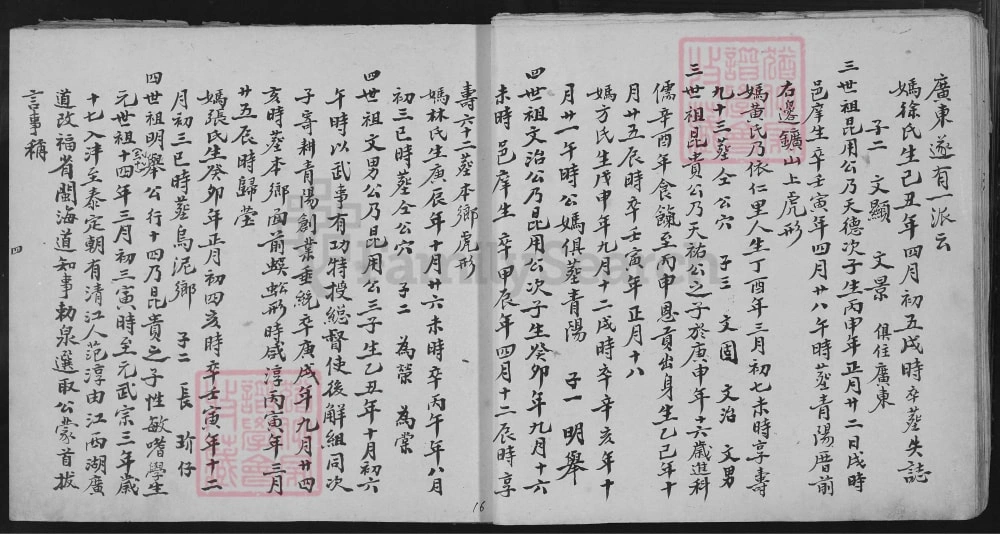 廣東遂有一派云
媽徐氏生己丑年四月初五戌時卒葬失誌
子二 文顯 文景 俱住廣東
三世祖昆用公乃天德次子生丙申年正月廿二日戌時
邑庠生卒壬寅年四月廿八午時葬青陽厝前
右邊鑛山上虎形
媽黃氏乃依仁里人生丁酉年三月初七未時享壽
九十三葬仝公穴 子三 文固 文治 文男
三世祖昆貴公乃天祐公之子於庚申年十六歲進科
儒辛酉年食餼至丙申恩貢出身生乙巳年十
月廿五辰時卒壬寅年正月十八
媽方氏生戊申年九月十二戌時卒辛亥年十
月廿一午時公媽俱葬青陽 子一 明舉
四世祖文治公乃昆用公次子生癸卯年九月十六
未時 邑庠生 卒甲辰年四月十二辰時享
壽六十二葬本鄉虎形
媽林氏生庚辰年十月廿六未時卒丙午年八月
初三巳時葬仝公穴 子二 為榮 為棠
四世祖文男公乃昆用公三子生乙丑年十月初六
午時以武事有功特授總督使後解組同次
子寄耕青陽創業垂統卒庚戌年九月廿四
亥時葬本鄉面前蜈蚣形時咸淳丙寅年三月
廿五辰時歸塟
媽張氏生癸卯年正月初四亥時卒壬寅年十二
月初三巳時葬烏泥鄉 子二 長 玠仔
四世祖明舉公行十四乃昆貴之子性敏嗜學生
元世祖十四年三月初三寅時至元武宗三年歲
十七入泮至泰定朝有清江人范淳由江西湖廣
道改福省閩海道知事勅泉選取公蒙首拔
言事稱
四
16
FamilySearch